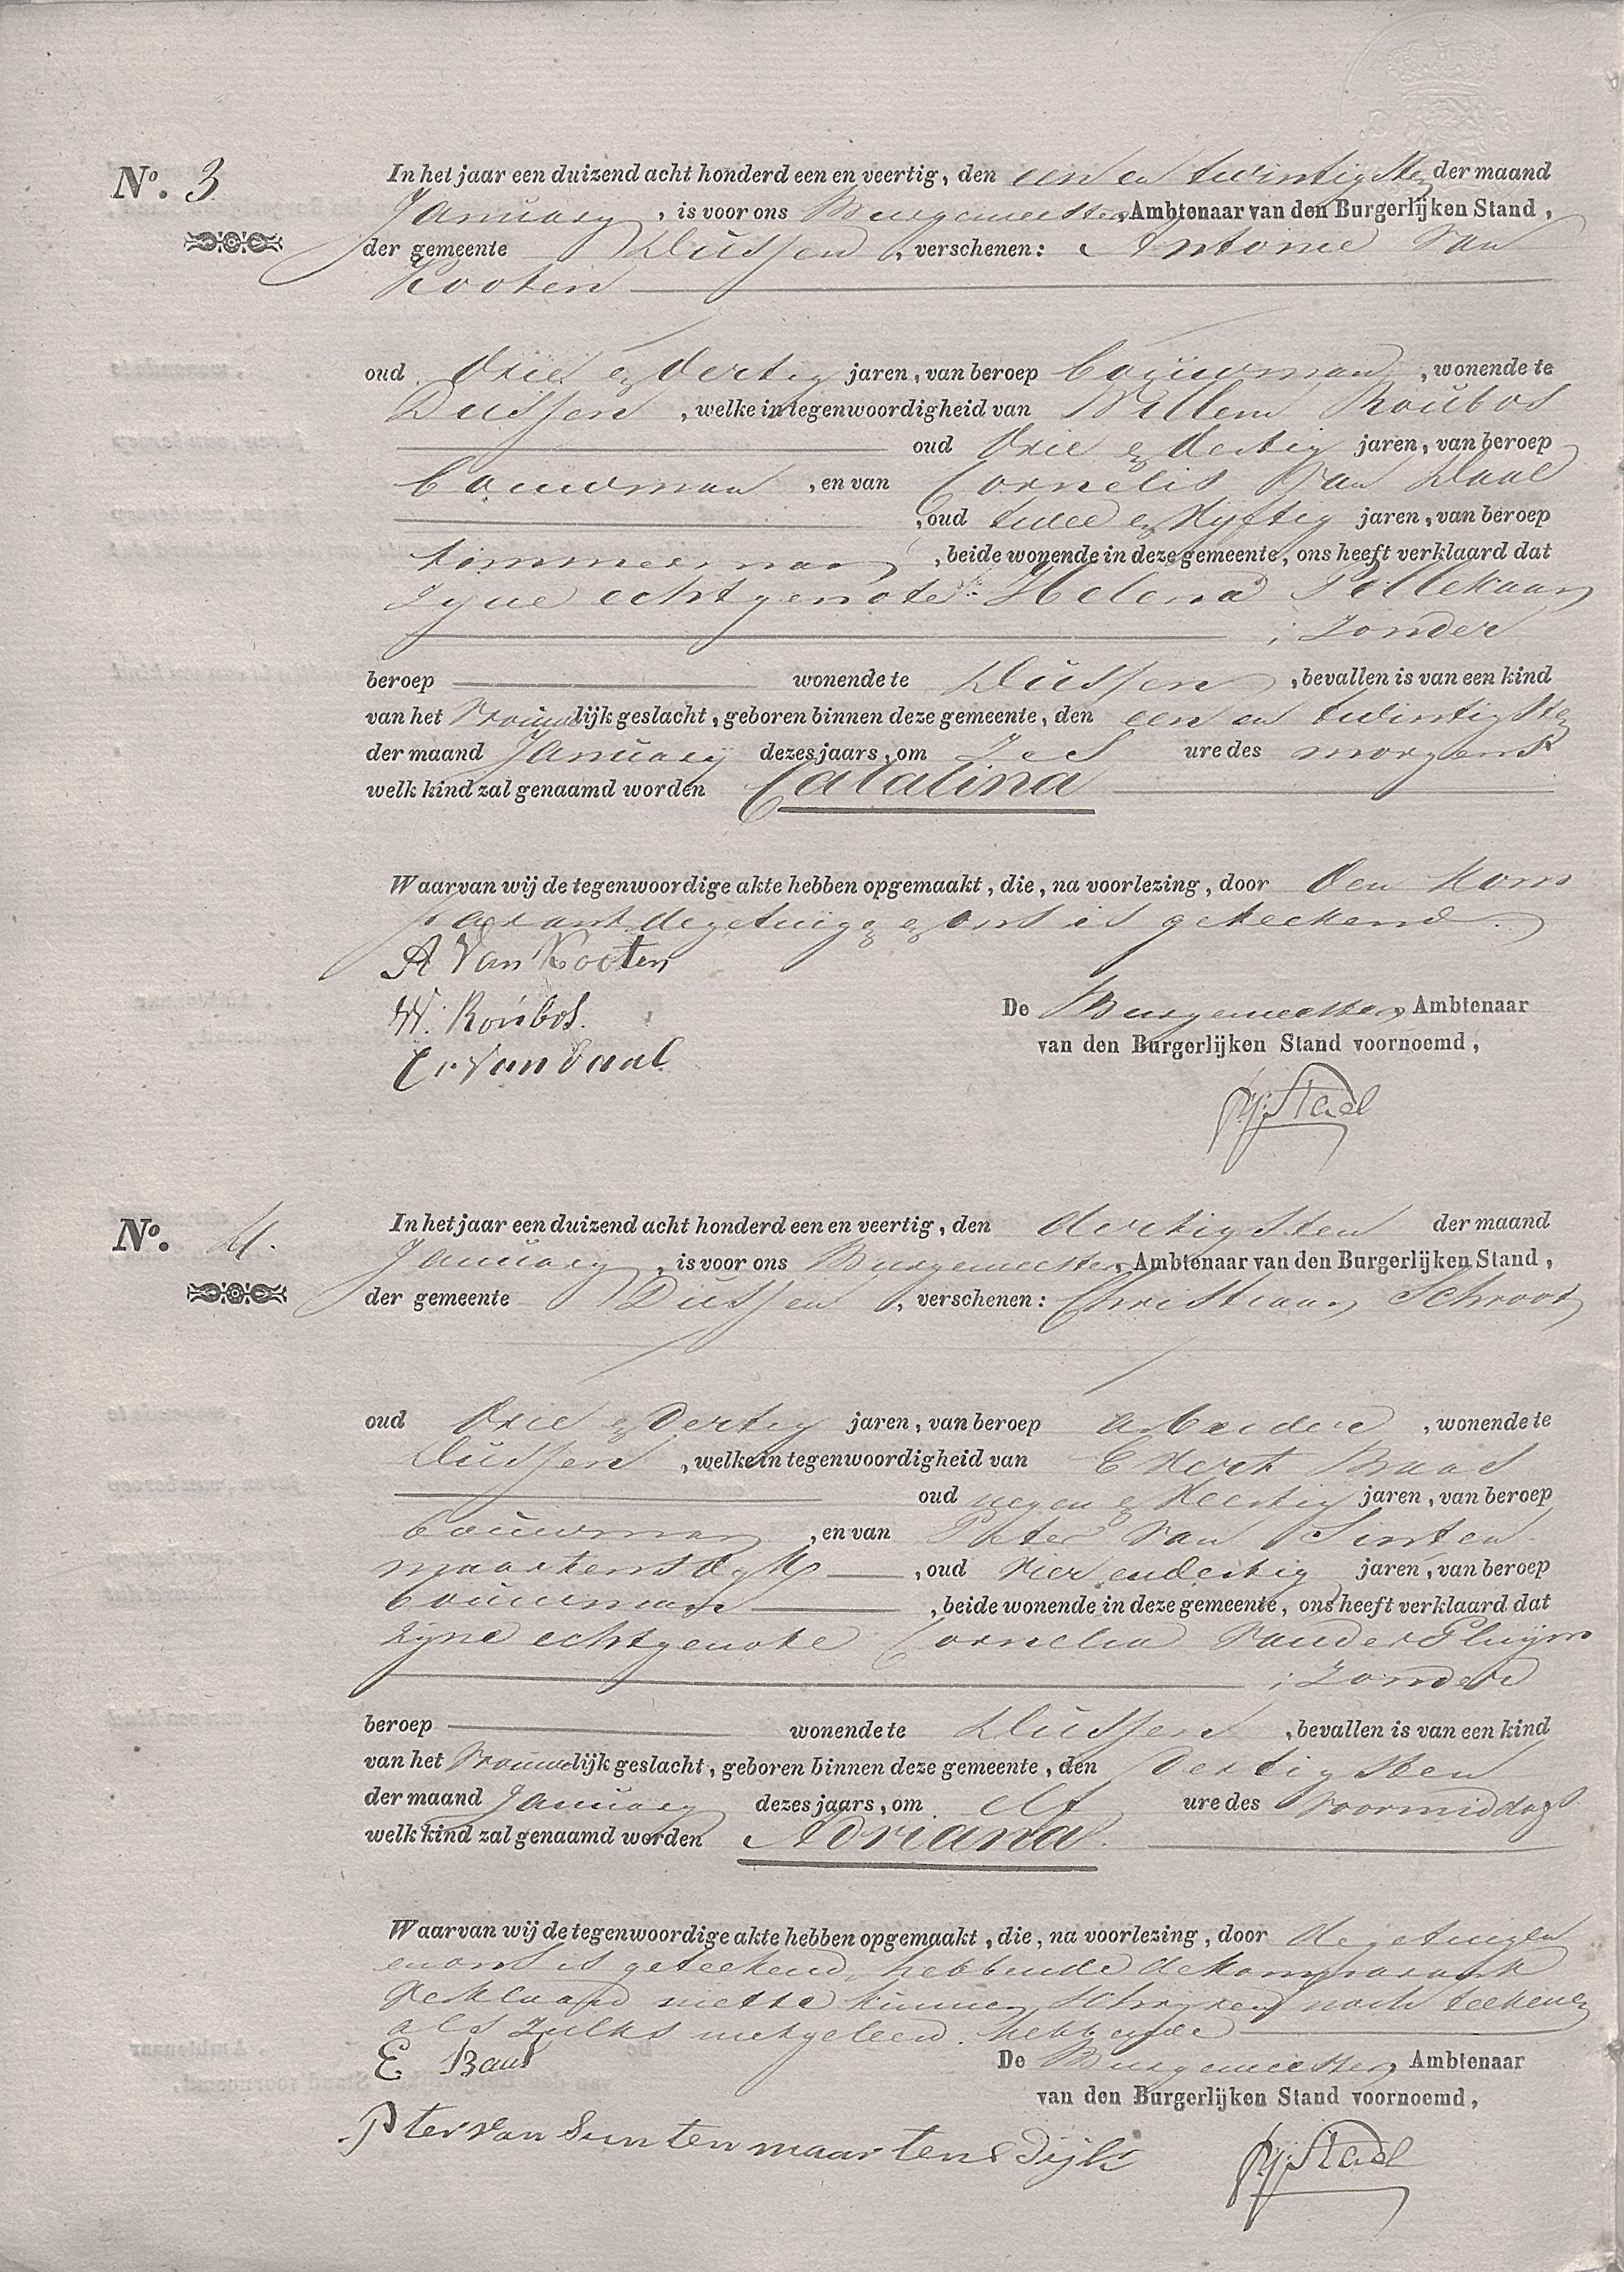 N.º 3
In het jaar een duizend acht honderd een en veertig, den een en twintigsten der maand
January, is voor ons Burgemeester, Ambtenaar van den Burgerlijken Stand,
der gemeente Dussen, verschenen: Antonie van
Kooten
oud drie en dertig jaren, van beroep bouwman, wonende te
Dussen, welke in tegenwoordigheid van Willem Roubos
oud drie en dertig jaren, van beroep
bouwman, en van Cornelis van Daal
, oud twee en vyftig jaren, van beroep
timmerman, beide wonende in deze gemeente, ons heeft verklaard dat
zyne echtgenote Helena Pellekaan
; zonder
beroep wonende te Dussen, bevallen is van een kind
van het vrouwelijk geslacht, geboren binnen deze gemeente, den een en twintigsten
der maand January dezes jaars, om zes ure des morgens
welk kind zal genaamd worden Catalina
Waarvan wij de tegenwoordige akte hebben opgemaakt, die, na voorlezing, door den kom
parant de getuigen en ons is geteekend.
A Van Kooten
W. Roubos.
C. van Daal
De Burgemeester, Ambtenaar
van den Burgerlijken Stand voornoemd,
N.º 4.
In het jaar een duizend acht honderd een en veertig, den dertigsten der maand
January, is voor ons Burgemeester, Ambtenaar van den Burgerlijken Stand,
der gemeente Dussen, verschenen: Christiaan Schroot
oud drie en dertig jaren, van beroep arbeider, wonende te
Dussen, welke in tegenwoordigheid van Evert Baas
oud negen en veertig jaren, van beroep
bouwman, en van Peter van Sinten
maartensdyk, oud vier en dertig jaren, van beroep
bouwman, beide wonende in deze gemeente, ons heeft verklaard dat
zyne echtgenote Cornelia van der Pluijm
; zonder
beroep wonende te Dussen, bevallen is van een kind
van het vrouwelijk geslacht, geboren binnen deze gemeente, den dertigsten
der maand January dezes jaars, om elf ure des voormiddags
welk kind zal genaamd worden Adriana.
Waarvan wij de tegenwoordige akte hebben opgemaakt, die, na voorlezing, door de getuigen
en ons is geteekend, hebbende de komparant
verklaard niet te kunnen schryven noch teekenen
als zulks niet geleerd hebbende
E Baas
De Burgemeester, Ambtenaar
van den Burgerlijken Stand voornoemd,
Pter van Sunten maartensdijk